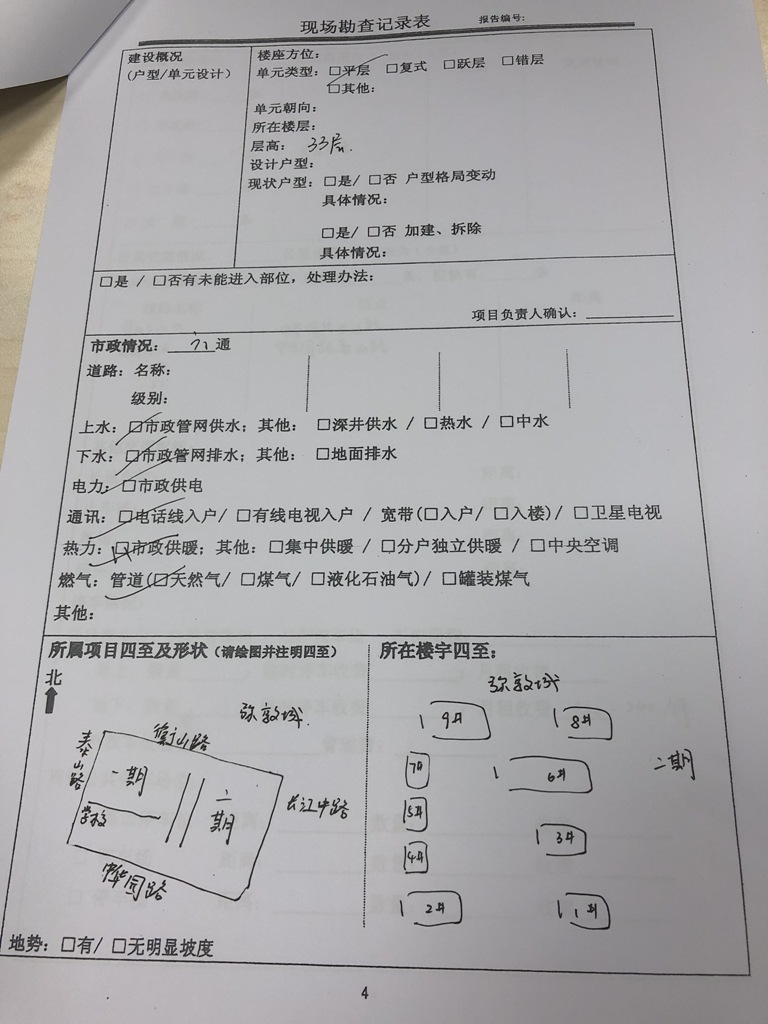 现场勘查记录表 报告编号:
建设概况
(户型/单元设计)
楼座方位:
单元类型: □平层 □复式 □跃层 □错层
□其他:
单元朝向:
所在楼层:
层高: 33层.
设计户型:
现状户型: □是/ □否 户型格局变动
具体情况:
□是/ □否 加建、拆除
具体情况:
□是 / □否有未能进入部位, 处理办法:
项目负责人确认:
市政情况: 通
道路: 名称:
级别:
上水: □市政管网供水; 其他: □深井供水 / □热水 / □中水
下水: □市政管网排水; 其他: □地面排水
电力: □市政供电
通讯: □电话线入户/ □有线电视入户 / 宽带(□入户/ □入楼)/ □卫星电视
热力: □市政供暖; 其他: □集中供暖 / □分户独立供暖 / □中央空调
燃气: 管道(□天然气/ □煤气/ □液化石油气)/ □罐装煤气
其他:
所属项目四至及形状 (请绘图并注明四至)
北
弥敦城
衡山路
泰山路
一期
二期
学校
长江中路
路
所在楼宇四至:
弥敦城
9#
8#
7#
6#
二期
5#
3#
4#
2#
1#
地势: □有/ □无明显坡度
4